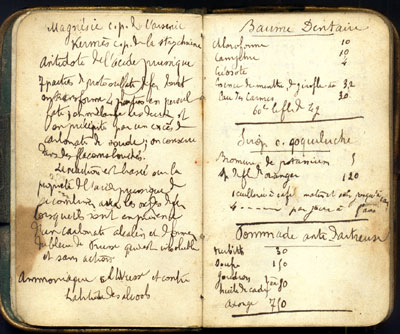 Magnésie c.p. de l'arsenic
Kermès c.p. de la strychnine
Antidote de l'acide prussique
7 parties de protosulfate de fer dont
on transforme 4 parties en persul
fate, on mélange les deux et
l'on précipite par un excès de
carbonate de soude; on conserve
dans des flacons bouchés.
La réaction est basée sur la
propriété de l'acide prussique de
se combiner avec les oxydes de fer
lorsqu'ils sont en présence
d'un carbonate alcalin et donner
du bleu de Prusse qui est insoluble
et sans action.
Ammoniaque et contre
l'alcool
Baume Dentaire
Chloroforme 10
Camphre 10
Créosote 4
Essence de menthe de girofle 3,2
Eau de Carmes 30
60c le fl. de 4g
Sirop c. coqueluche
Bromure de potassium 5
Sp de fl. d'oranger 120
1 cuillerée à café matin et soir
4 par jour à 5 ans
Pommade anti-dartreuse
Turbith 30
Soufre 150
Goudron
huile de cade 80
Axonge 750